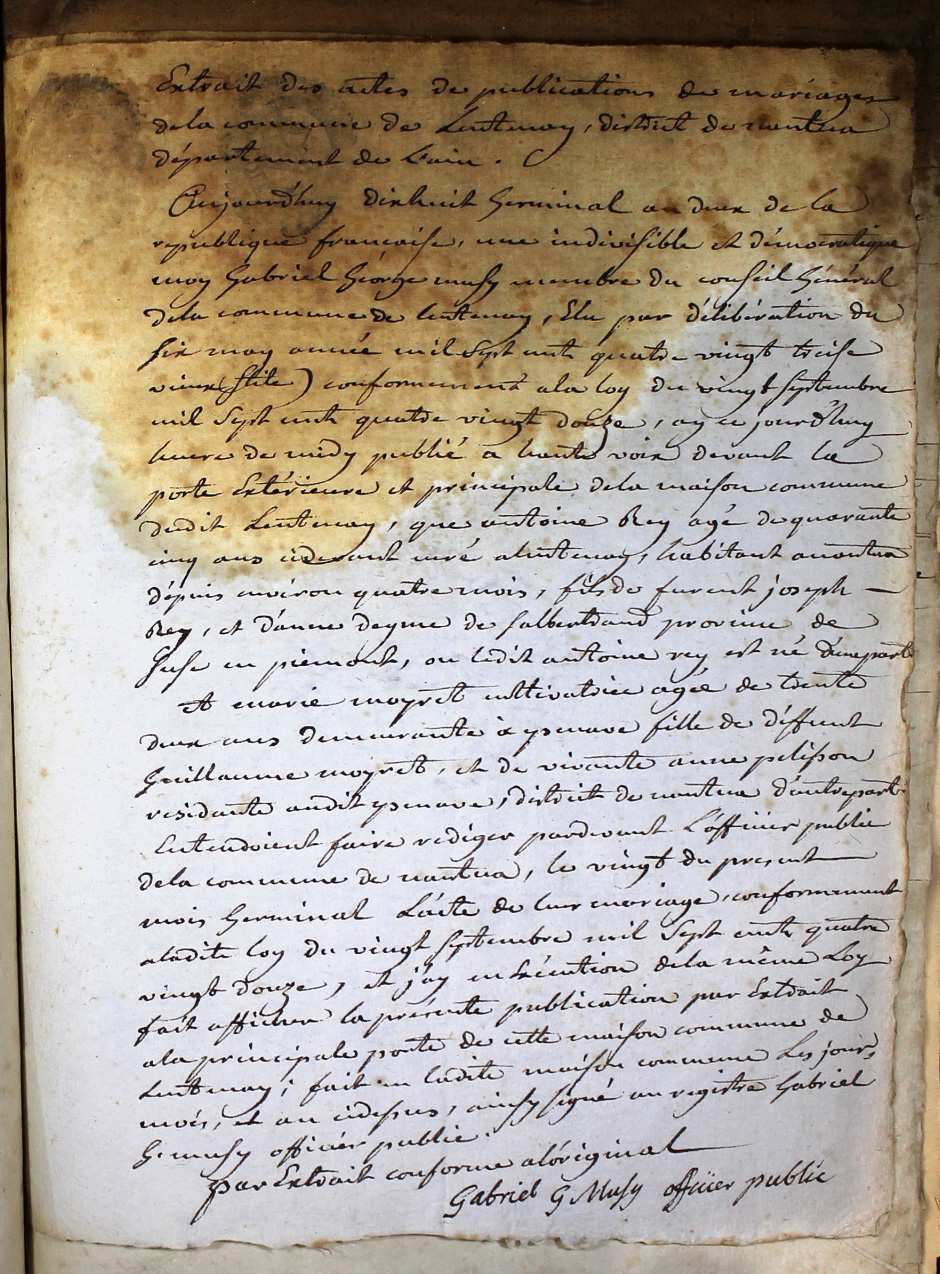 Extrait des actes de publications de mariages
dela commune de Lentenay, district de nantua
département de L'ain.
Aujourd'huy dixhuit Germinal an deux de la
republique francaise, une indivisible et démocratique
moy Gabriel George musy membre du conseil Général
dela commune de lentenay, Elu par déliberation du
six may année mil sept cent quatre vingt treise
vieux (stile) conformement ala loy du vingt septembre
mil sept cent quatre vingt douze, ay ce jourd'huy
heure de midy publié a haute voix devant la
porte Extérieure et principale dela maison commune
dudit Lentenay, que antoine Rey agé de quarante
cinq ans cidevant curé alentenay, habitant anantua
dépuis environ quatre mois, fils de furent joseph
Rey, et d'anne deyme de salbertrand province de
suse en piemont, ou ledit antoine rey est né d'une part
et marie moyret cultivatrice agée de trente
deux ans demeurante à ysenave fille de déffunt
Guillaume moyret, et de vivante anne pelisson
residante audit ysenave, district de nantua d'autre part.
Entendoient faire rediger pardevant L'officier public
dela commune de nantua, le vingt du present
mois Germinal L'acte de leur mariage, conformement
aladite loy du vingt septembre mil sept cent quatre
vingt douze, et j'ay en Exécution dela même Loy
fait afficher la présente publication par Extrait
ala principale porte de cette maison commune de
Lentenay; fait en ladite maison commune Les jour,
mois, et an cidessus, ainsy signé au registre Gabriel
G. musy officier public.
par Extrait conforme alóriginal
Gabriel G Musy officier public